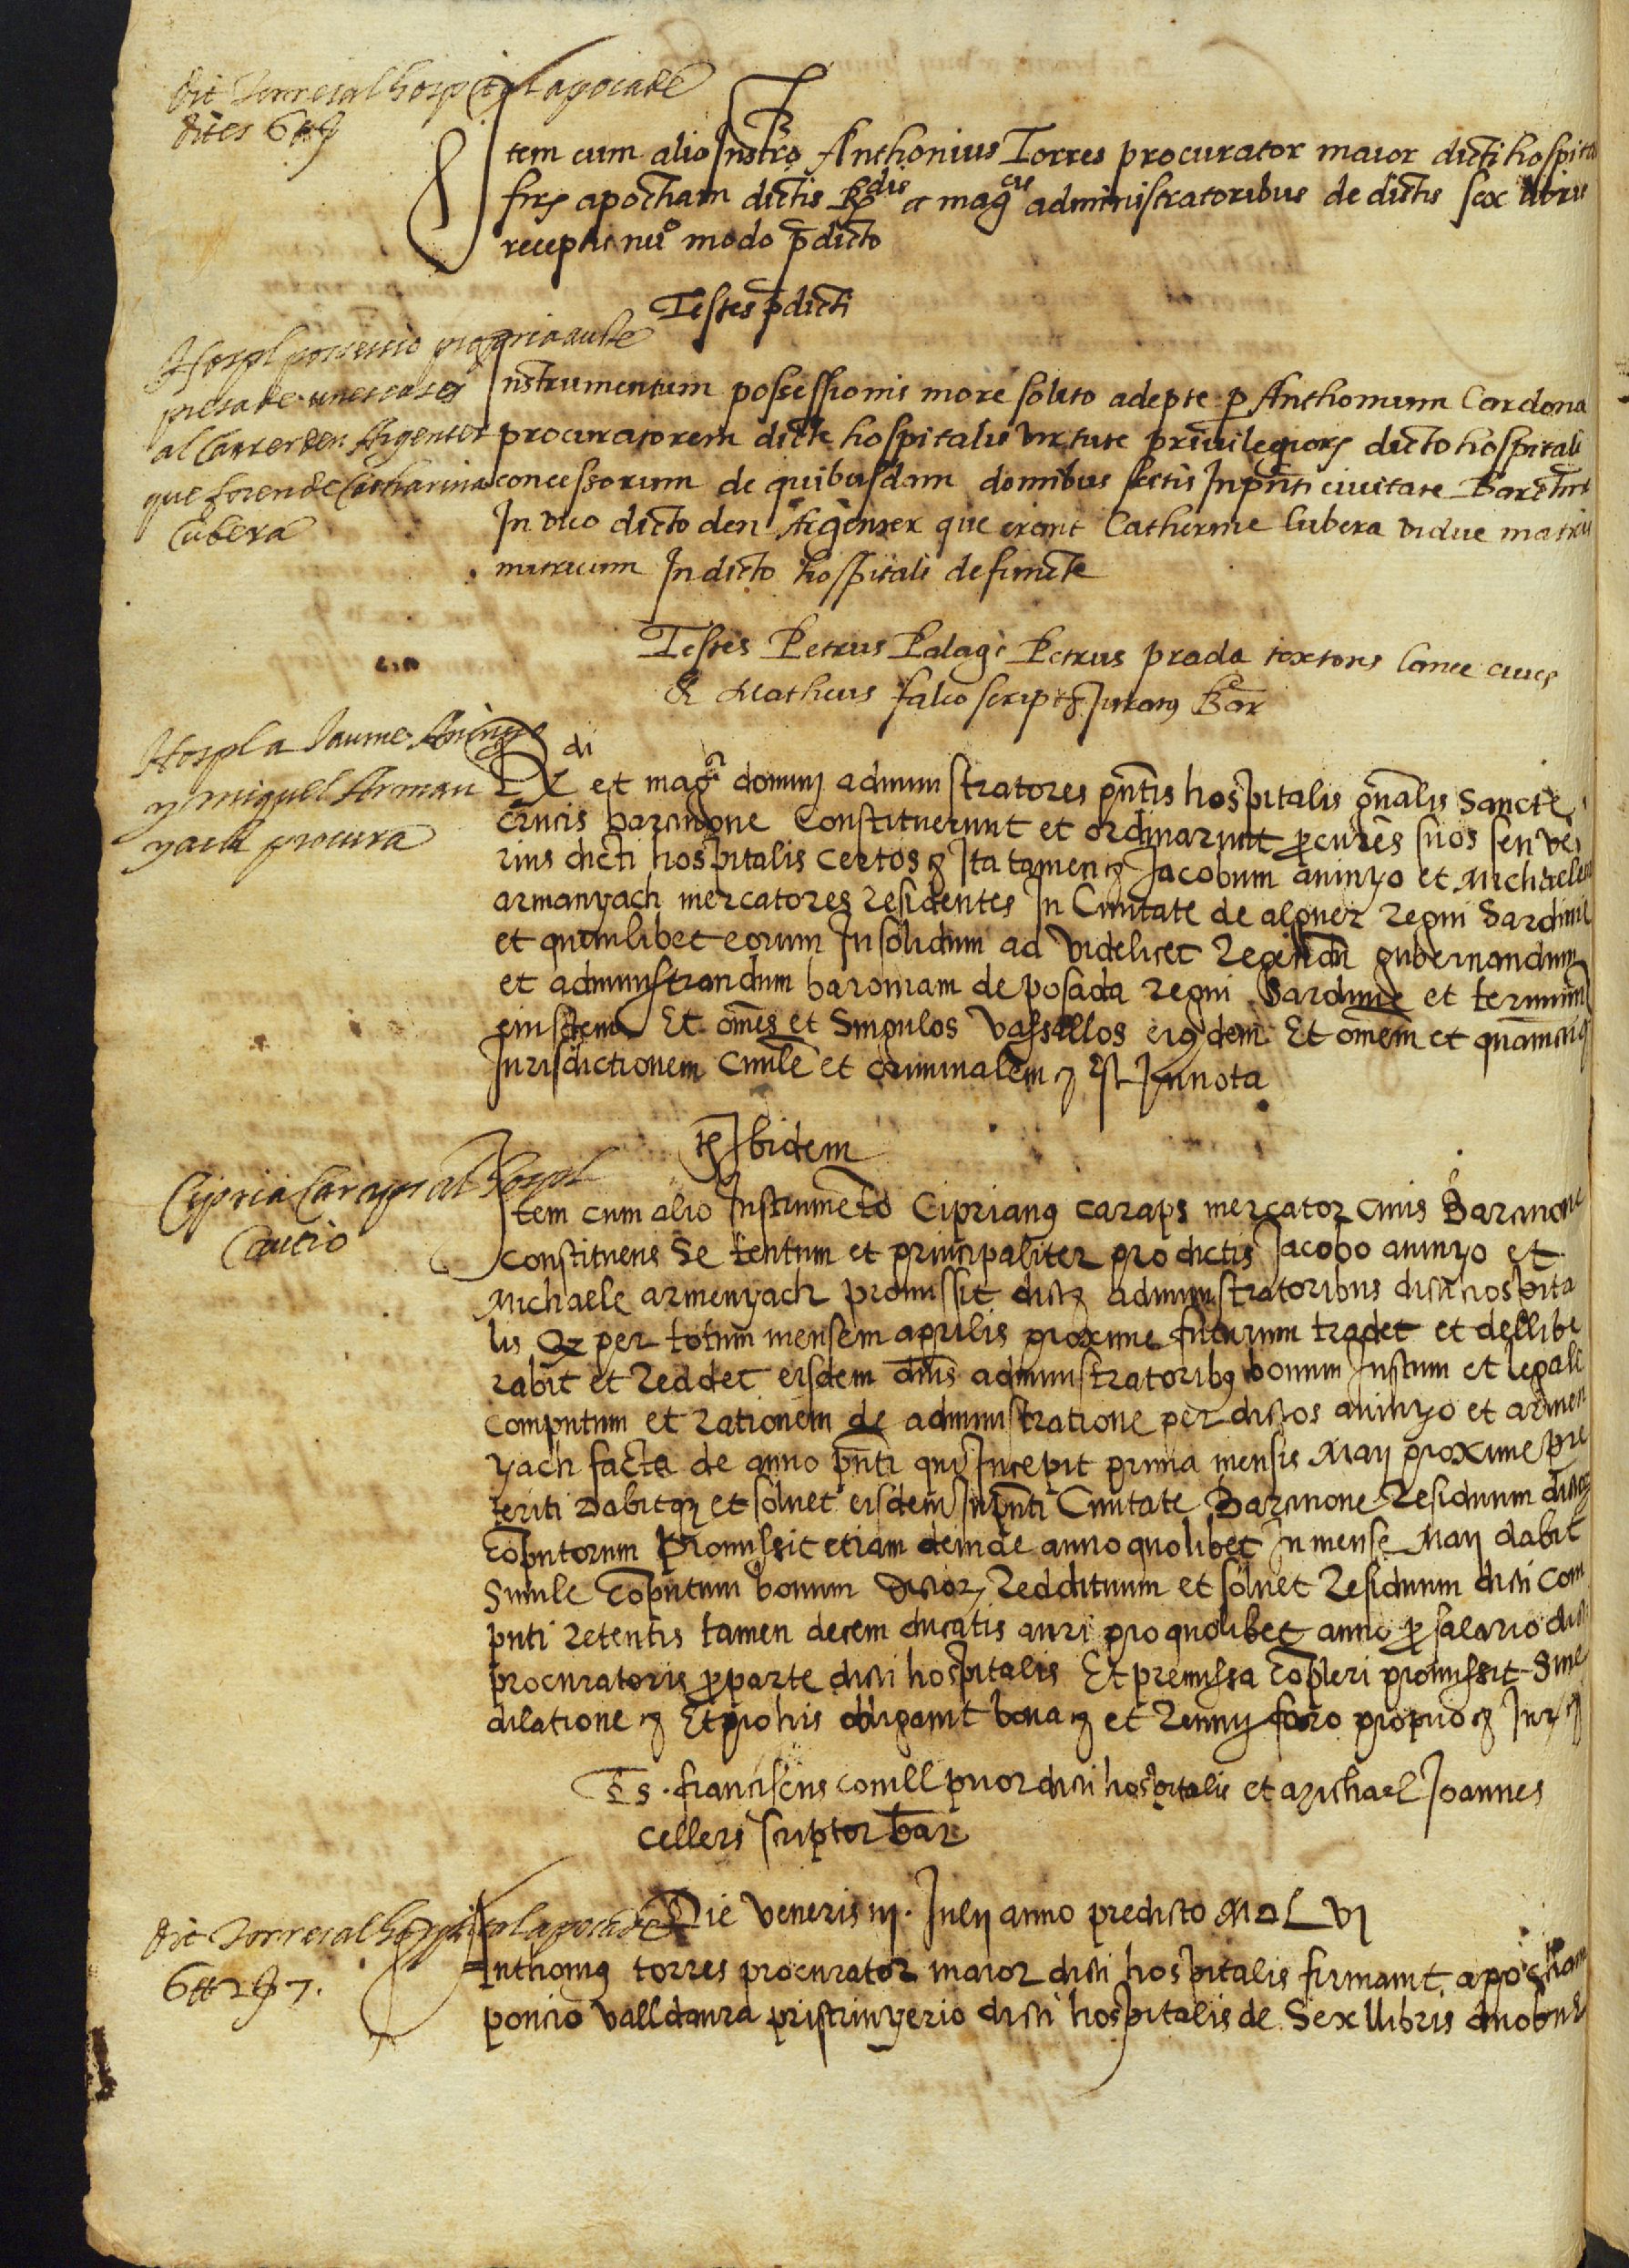 dit Torres al hospital apoca de
dites 6 ff
Item cum alio Instro Anthonius Torres procurator maior dicti hospita
apocham dictis Rdis et magcis administratoribus de dictis sex libris
receptis modo pdicto
Testes pdicti
Hospl possessio propria auste
presa de unes cases
al Carrer den Argenter
que foren de Catharina
Cubera
Instrumentum possessionis more solito adepte p Anthonium Cardona
procuratorem dicte hospitalis virtute privilegiorz dicto hospitali
concessorum de quibusdam domibus sitis In pnti civitate Barchne
In vico dicto den Argenter que erant Catherine Cubera vidue matris
In dicto hospitali defuncte
Testes Petrus Palagi Petrus prada textores lane cives
& Matheus falco script Juratus Bar
Hospl a Jaume Aninyo
y miquel Arman
yach procura
Rdi et magci domini administratores pntis hospitalis gnalis Sancte
crucis barcinone Constituerunt et ordinarunt pcures suos seu ve
rius dicti hospitalis certos &c Ita tamen &c Jacobum aninyo et Michaelem
armanyach mercatores residentes In Civitate de alguer regni Sardinie
et quemlibet eorum In solidum ad videlicet Regendu gubernandum
et administrandum baroniam de posada regni Sardinie et termini
eiusdem Et omes et Singulos vassallos eiusdem Et omem et quamcuq
Jurisdictionem Civile et criminalem &c In nota
Ts Ibidem
Cipria Caraps al hospl
Caucio
Item cum alio Instrumeto Ciprianus caraps mercator civis Barcinone
constituens Se tentum et principaliter pro dictis Jacobo aninyo et
Michaele armenyach promissit dictis administratoribus dicti hospita
lis Qz per totum mensem aprilis proxime futurum tradet et dellibe
rabit et reddet eisdem dnis administratoribus bonum Justum et legale
computum et rationem de administratione per dictos aninyo et armen
yach facta de anno pnti qui Incepit prima mensis Maij proxime pre
teriti dabitqz et solvet eisdem In pnti Civitate Barcinone residuum dictorz
coputorum Promissit etiam deinde anno quolibet In mense Maij dabit
Simile coputum bonum dictorz reddituum et solvet residuum dicti com
puti retentis tamen decem ducatis auri pro quolibet anno p salario dicti
procuratoris p parte dicti hospitalis Et premissa copleri promissit Sine
dilatione &c Et pro his obligavit bona &c et renuny foro proprio &c Jur &c
Ts. franciscus conill prior dicti hospitalis et Michael Joannes
cellers scriptor bar
dit Torres al hospital apoca de
6 ℔ 2 ß 7.
Die Veneris iij. Julij anno predicto MDLVI
Anthonius torres procurator maior dicti hospitalis firmavit apocham
poncio valldaura pristinyerio dicti hospitalis de Sex llibris duobus